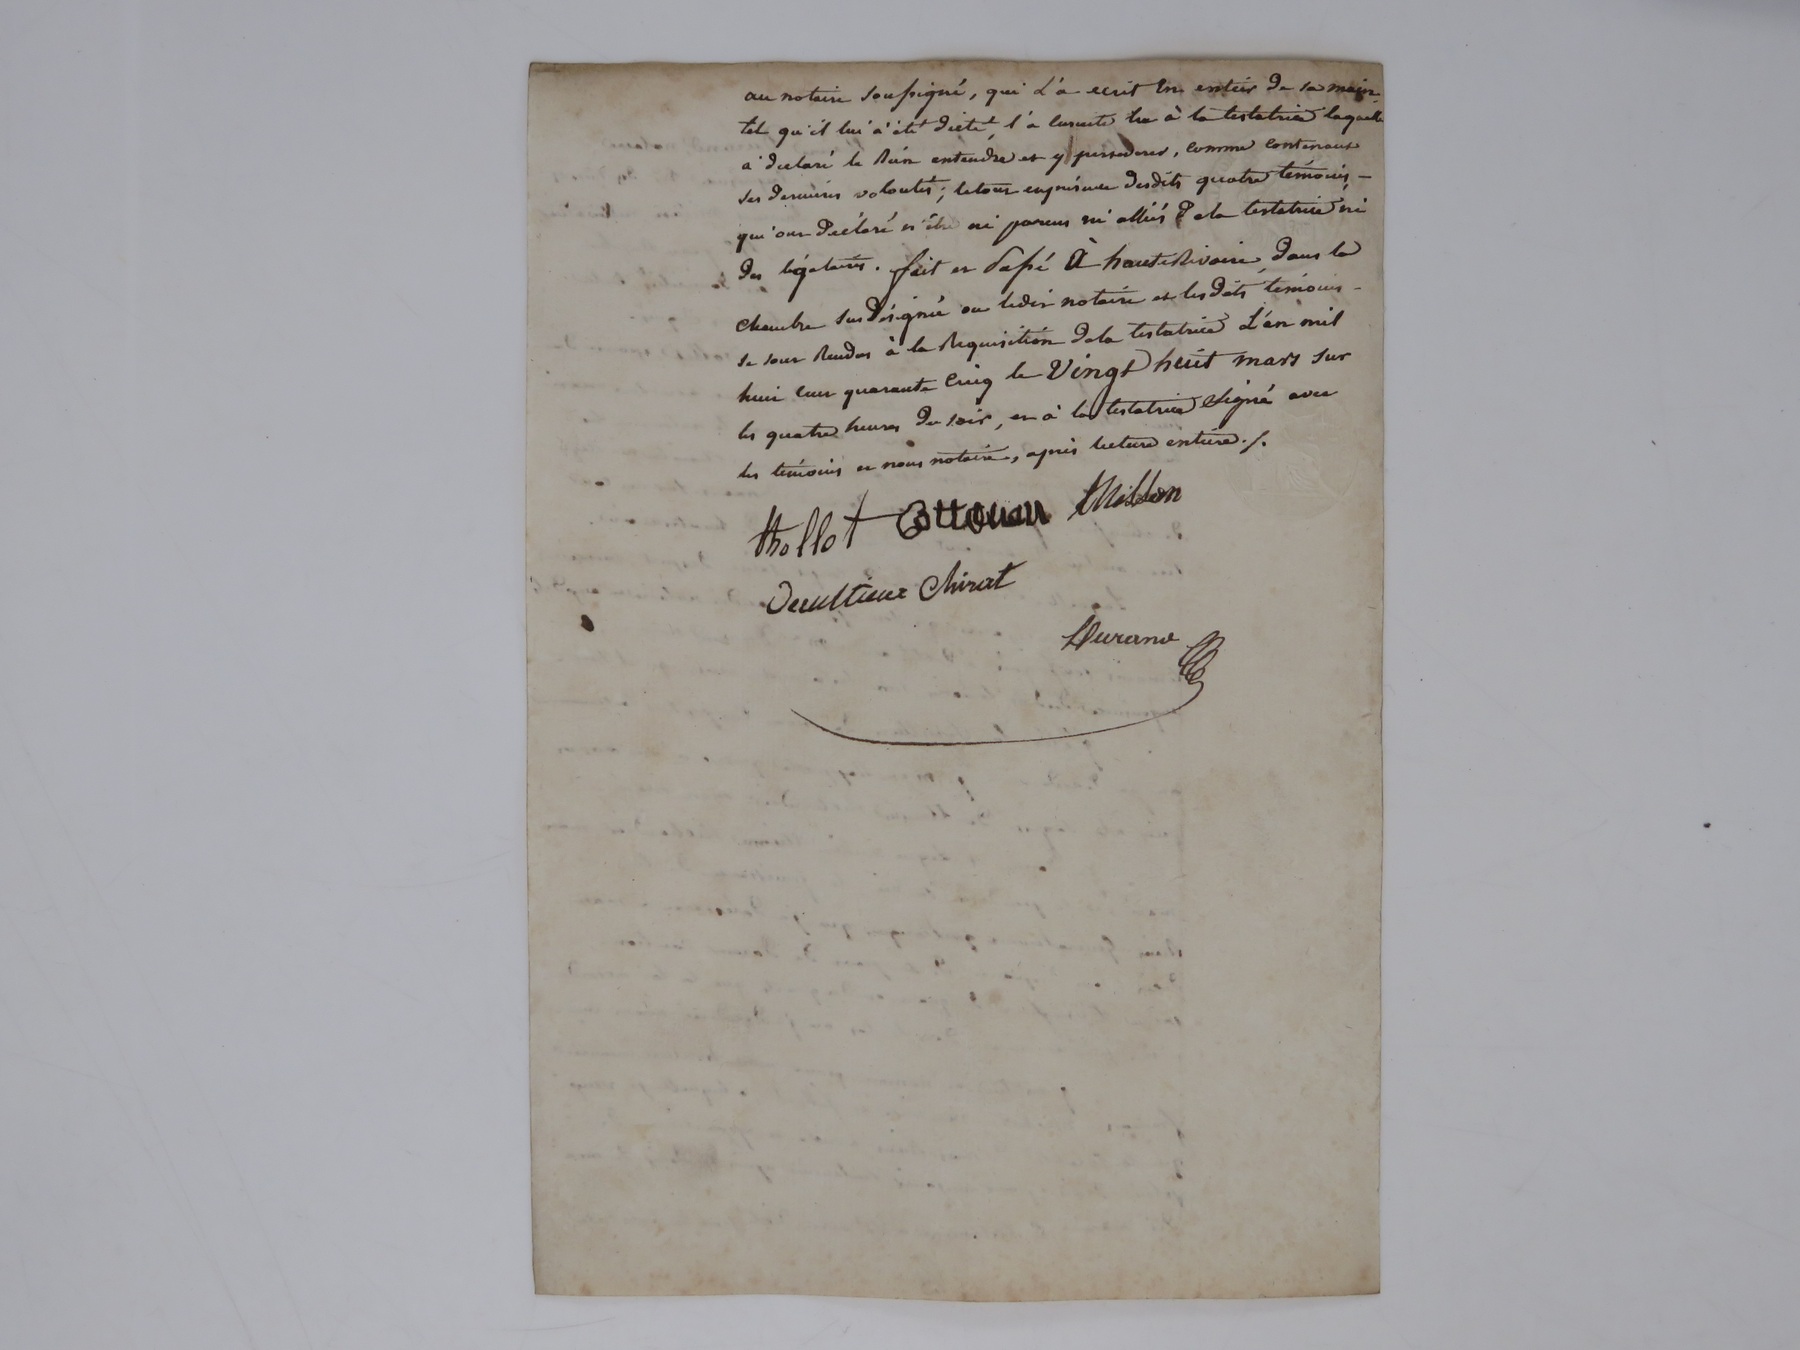 au notaire soussigné, qui l'a ecrit en entier de sa main,
tel qu'il lui a été dicté, l'a ensuite lu à la testatrice laquelle
a déclaré le bien entendre et y perseverer, comme contenant
ses dernieres volontés; le tout en présence desdits quatre témoins, -
qui ont déclaré n'être ni parens ni alliés de la testatrice ni
des légataires. fait et passé à hauterivoire, dans la
chambre sus désignée ou ledit notaire et lesdits témoins -
se sont rendus à la requisition de la testatrice l'an mil
huit cent quarante cinq le vingt huit mars sur
les quatre heures du soir, et à la testatrice signé avec
les témoins et nous notaire, après lecture entière./.
thollot Thillon
Chirat
Durand